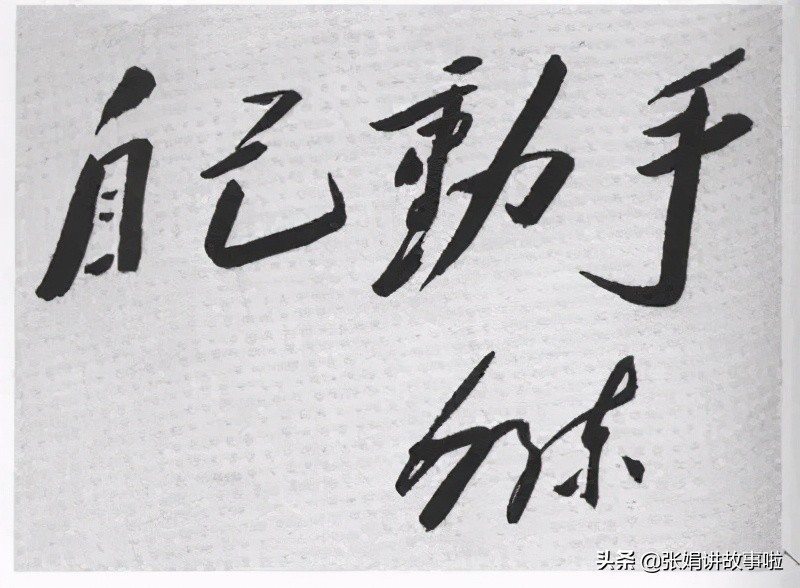 自己動手
毛泽东
头条 @张娟讲故事啦